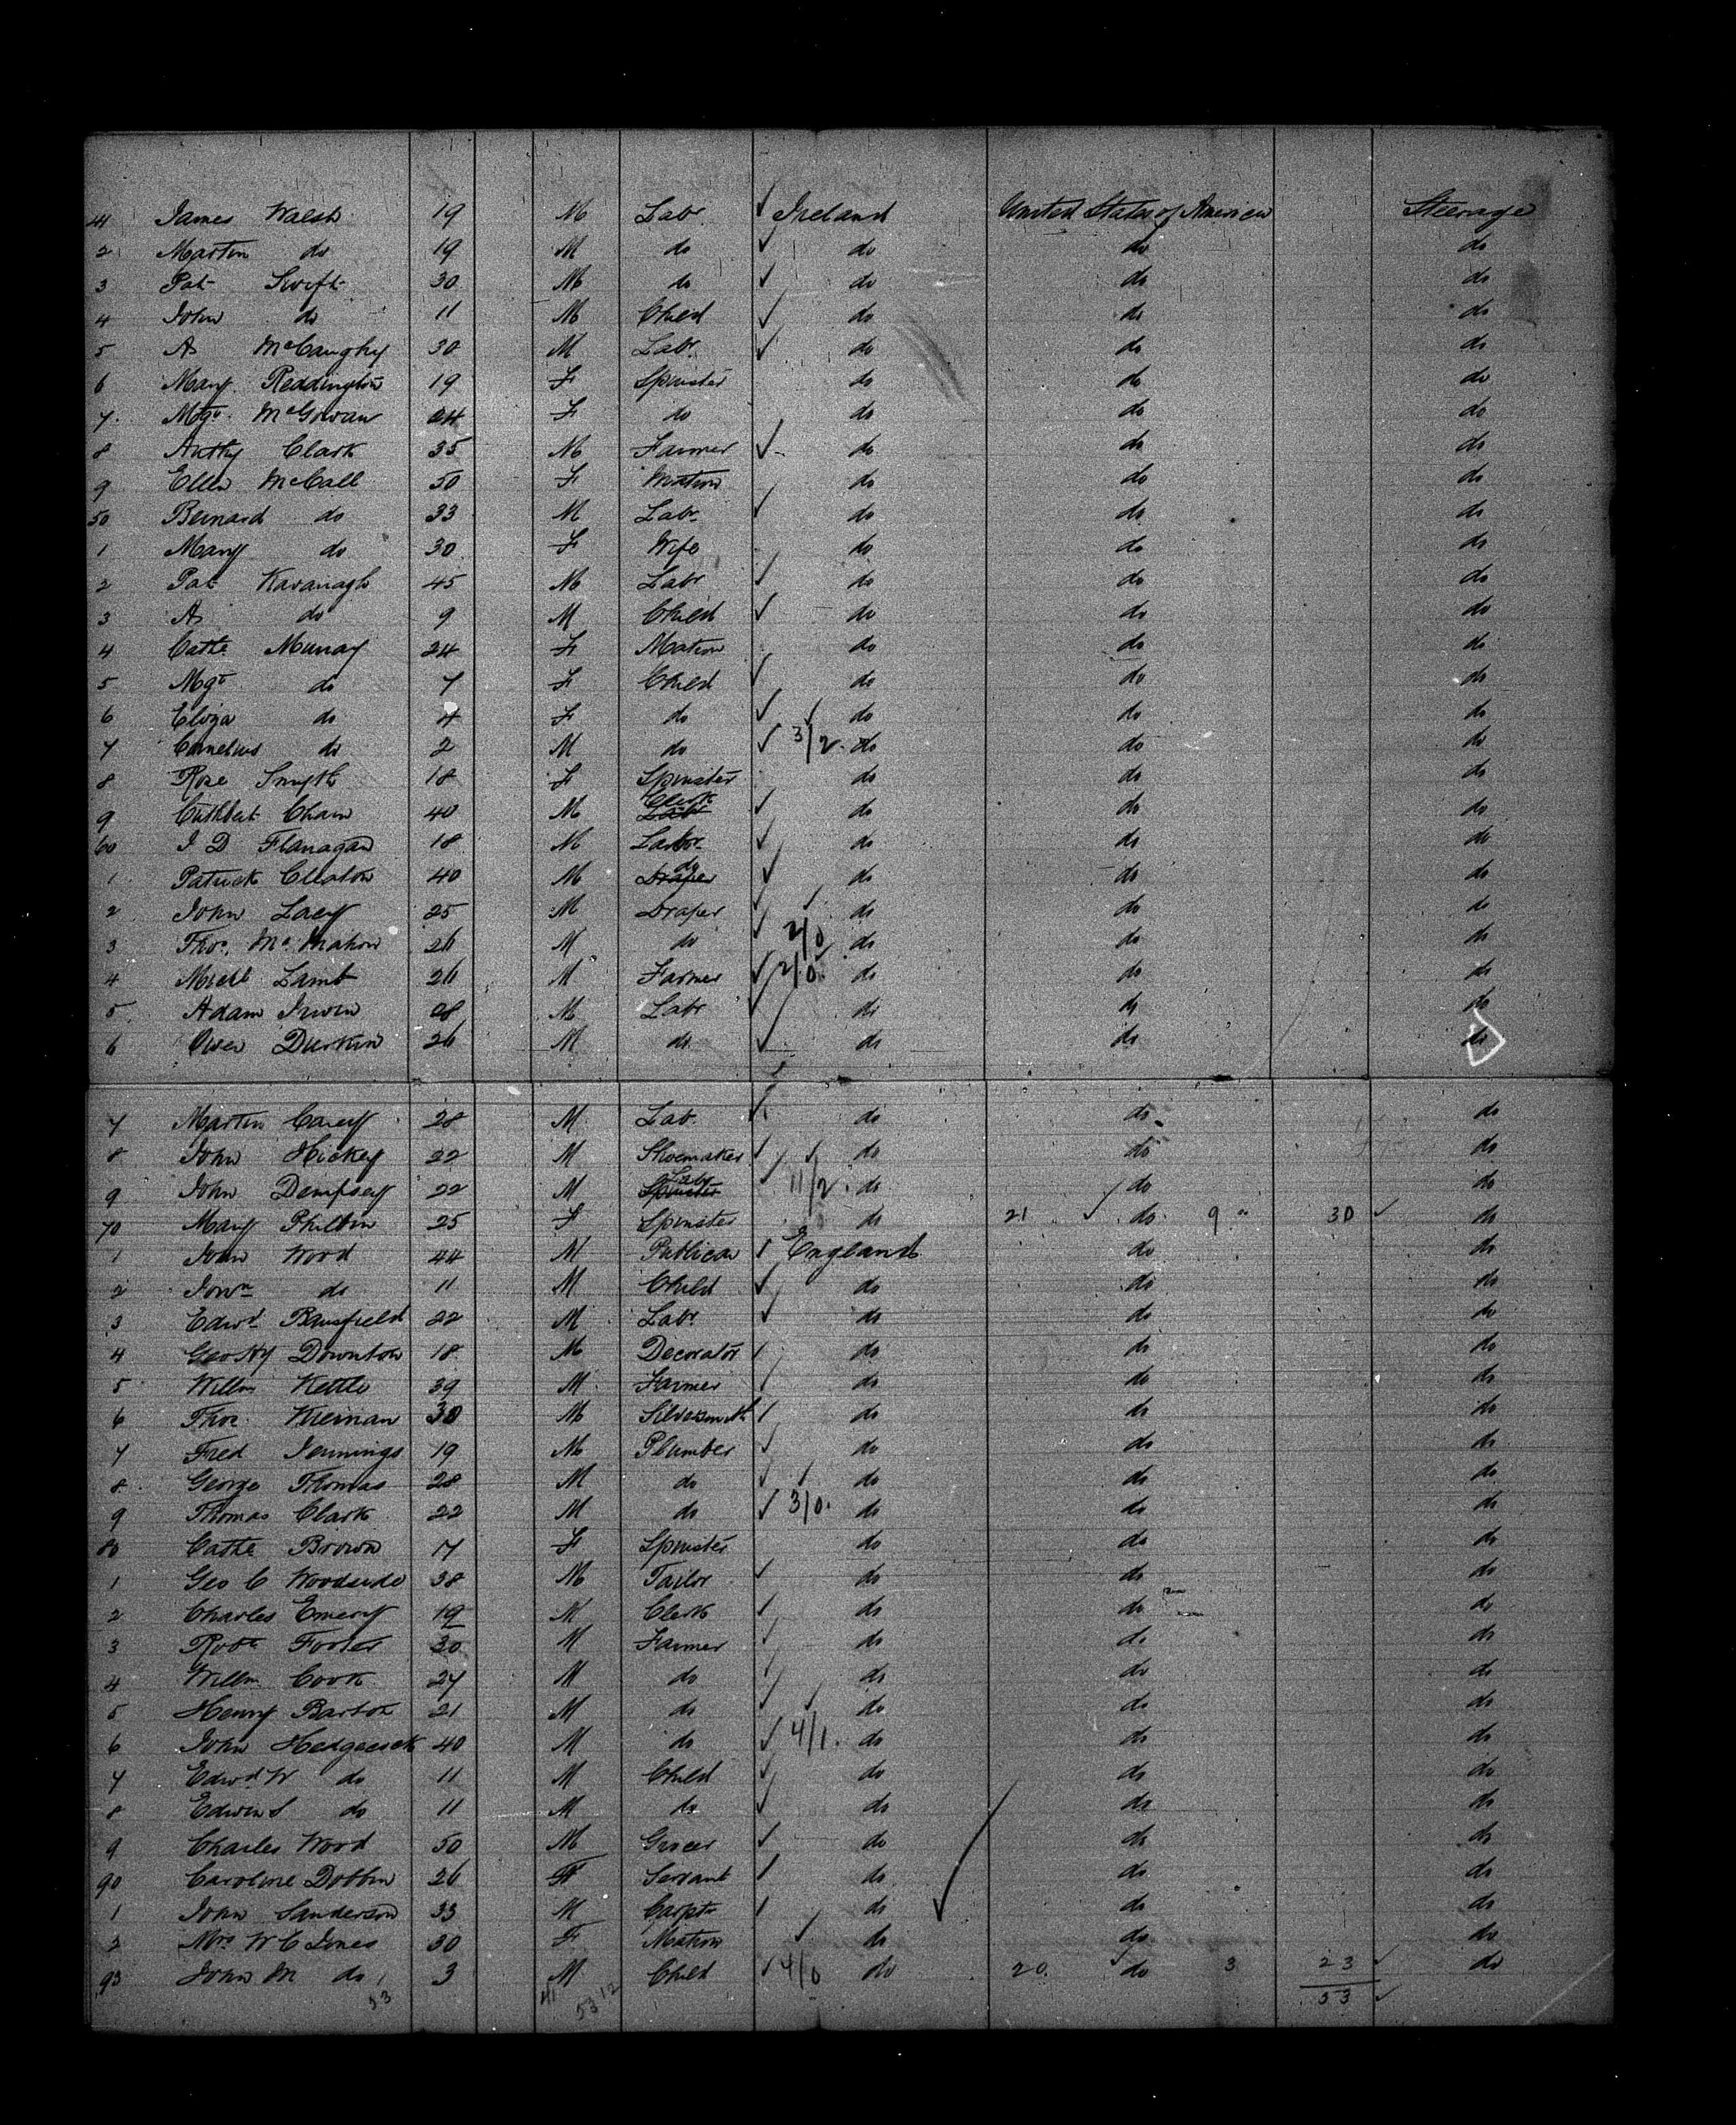 41 James Walsh 19 M Labr Ireland United States of America Steerage
2 Martin do 19 M do do do do
3 Pat Swift 30 M do do do do
4 John do 11 M Child do do do
5 A McCaughy 30 M Labr do do do
6 Mary Reddington 19 F Spinster do do do
7 Mgt McGowan 24 F do do do do
8 Anthy Clark 35 M Farmer do do do
9 Ellen McCall 50 F Matron do do do
50 Bernard do 33 M Labr do do do
1 Mary do 30 F Wife do do do
2 Pat Kavanagh 45 M Labr do do do
3 A do 9 M Child do do do
4 Cathe Murray 24 F Matron do do do
5 Mgt do 7 F Child do do do
6 Eliza do 4 F do do do do
7 Cornelius do 2 M do 3/2 do do do
8 Rose Smyth 18 F Spinster do do do
9 Cuthbert Cham 40 M Clerk do do do
60 J D Flanagan 18 M Labr do do do
1 Patrick 40 M do do do do
2 John Lacy 25 M Draper do do do
3 Thos. McMahon 26 M do 2/0 do do do
4 Michl Lamb 26 M Farmer 2/0 do do do
5 Adam Irwin 28 M Labr do do do
6 Owen Durkin 26 M do do do do
7 Martin Carey 28 M Lab. do do do
8 John Hickey 22 M Shoemaker do do do
9 John Dempsey 22 M Labr 11/2 do do do
70 Mary Philbin 25 F Spinster do 21 do 9 30 do
1 John Wood 44 M Publican England do do
2 Jonn do 11 M Child do do do
3 Edwd Bansfield 22 M Labr do do do
4 Geo Hy Downton 18 M Decorator do do do
5 Willm Kettle 39 M Farmer do do do
6 Thos. Kiernan 30 M Silversmith do do do
7 Fred Jennings 19 M Plumber do do do
8 George Thomas 28 M do do do do
9 Thomas Clark 22 M do 3/0 do do do
80 Cathe Brown 17 F Spinster do do do
1 Geo C Woodside 38 M Tailor do do do
2 Charles Emery 19 M Clerk do do do
3 Robt Foster 30 M Farmer do do do
4 Willm Cook 27 M do do do do
5 Henry Barton 21 M do do do do
6 John 40 M do 4/1 do do do
7 Edwd W do 11 M Child do do do
8 Edwin S do 11 M do do do do
9 Charles Wood 50 M Grocer do do do
90 Caroline Dobbin 26 F Servant do do do
1 John Sanderson 33 M Carptr do do do
2 Mrs W C Jones 30 F Matron do do do
93 John M do 3 M Child 4/0 do 20 do 3 23 do
53 41 53 12 53